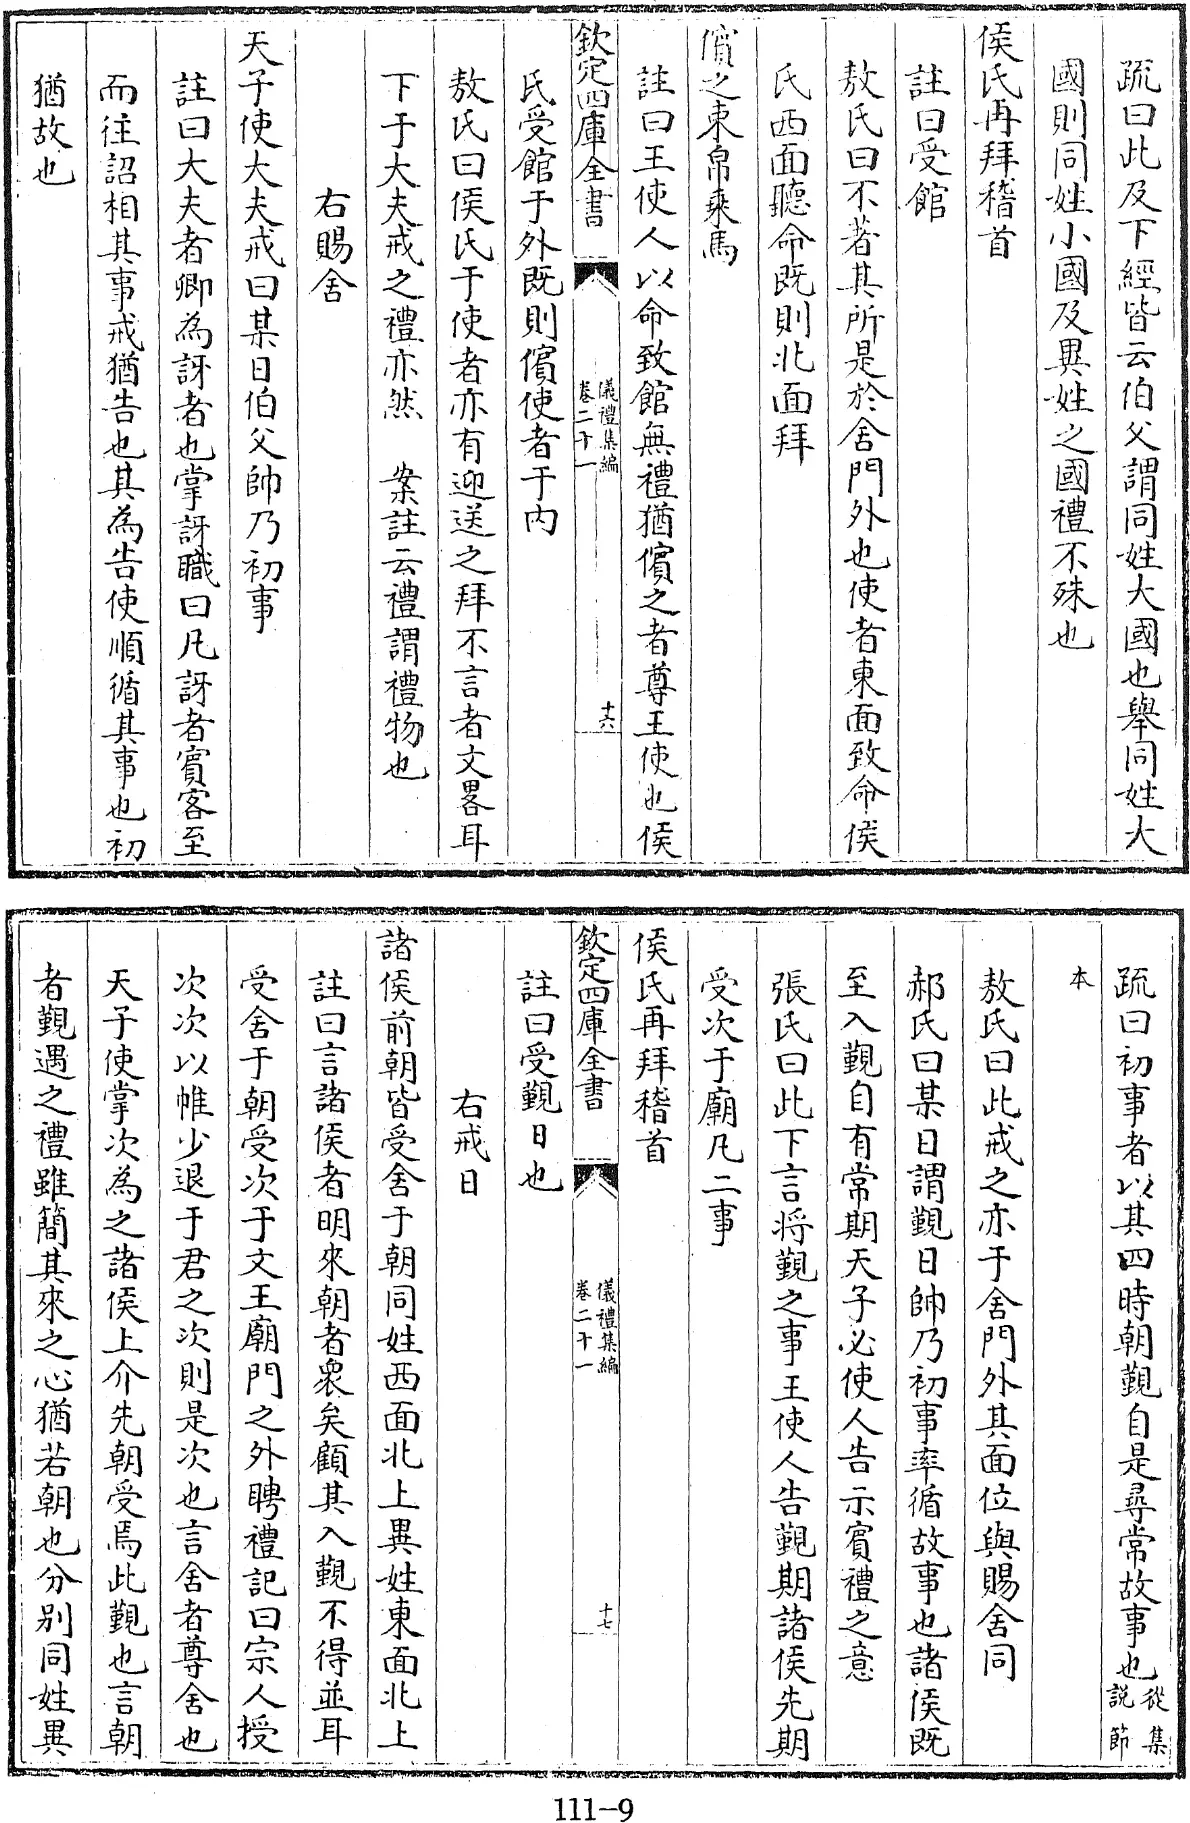 疏曰此及下經皆云伯父謂同姓大國也舉同姓大
國則同姓小國及異姓之國禮不殊也
侯氏再拜稽首
註曰受館
敖氏曰不著其所是於舍門外也使者東面致命侯
氏西面聽命既則北面拜
儐之束帛乘馬
註曰王使人以命致館無禮猶儐之者尊王使也侯
欽定四庫全書
儀禮集編
卷二十一
十六
氏受館于外既則儐使者于内
敖氏曰侯氏于使者亦有迎送之拜不言者文畧耳
下于大夫戒之禮亦然 案註云禮謂禮物也
右賜舍
天子使大夫戒曰某日伯父帥乃初事
註曰大夫者卿為訝者也掌訝職曰凡訝者賓客至
而往詔相其事戒猶告也其為告使順循其事也初
猶故也
疏曰初事者以其四時朝覲自是尋常故事也從集
說節
本
敖氏曰此戒之亦于舍門外其面位與賜舍同
郝氏曰某日謂覲日帥乃初事率循故事也諸侯既
至入覲自有常期天子必使人告示賓禮之意
張氏曰此下言将覲之事王使人告覲期諸侯先期
受次于廟凡二事
侯氏再拜稽首
欽定四庫全書
儀禮集編
卷二十一
十七
註曰受覲日也
右戒日
諸侯前朝皆受舍于朝同姓西面北上異姓東面北上
註曰言諸侯者明來朝者衆矣顧其入覲不得並耳
受舍于朝受次于文王廟門之外聘禮記曰宗人授
次次以帷少退于君之次則是次也言舍者尊舍也
天子使掌次為之諸侯上介先朝受焉此覲也言朝
者覲遇之禮雖簡其來之心猶若朝也分别同姓異
111-9